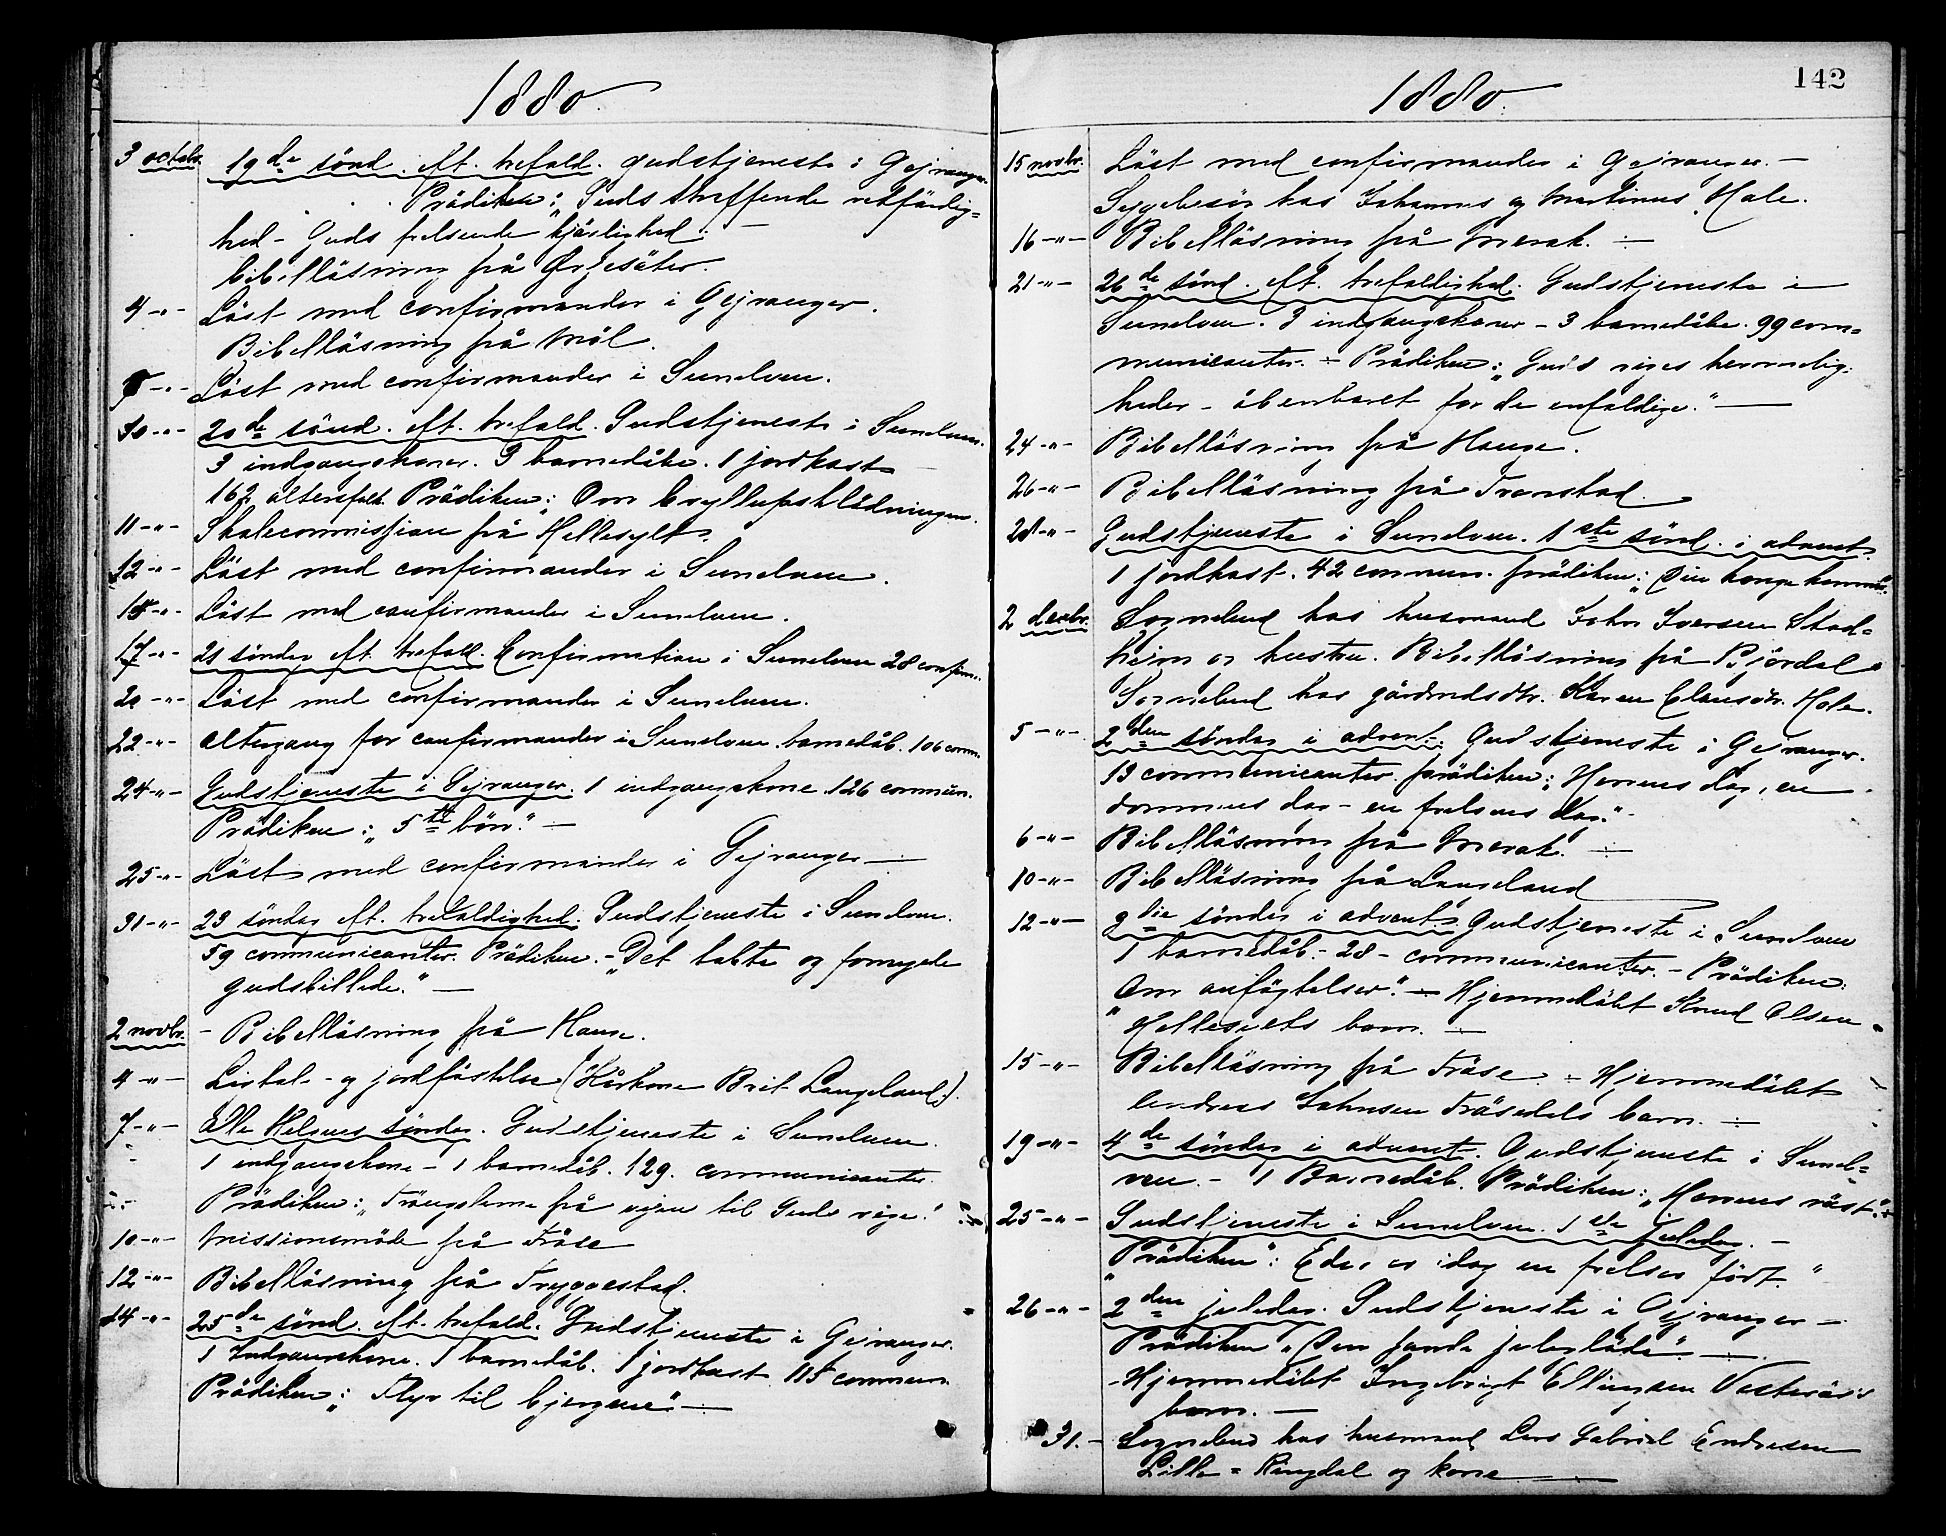 1880.
3 octobr. 19de sönd. eft. trefald. gudstjeneste i Gejranger.
Prädiken: „Guds straffende retfärdig=
hed – Guds frelsende kjärlighed. –
bibelläsning på Ørjesäter.
4 -"- Läst med confirmander i Gejranger.
Bibelläsning på Möl.
-"- Läst med confirmander i Sunelven.
10 -"- 20de sönd. eft. trefald. Gudstjeneste i Sunelven.
3 indgangskoner. 3 barnedåbe. 1 jordkast
162 altersfolk. Prädiken: „Om bryllupsklädningen.
11 -"- Skolecommission på Hellesylt.
12 -"- Läst med confirmander i Sunelven.
15 -"- Läst med confirmander i Sunelven.
17 -"- 21 söndag eft. trefald. Confirmation i Sunelven 28 confirm.
20 -"- Läst med confirmander i Sunelven.
22 -"- Altergang for confirmander i Sunelven. barnedåb. 106 comm.
24 -"- Gudstjeneste i Gejranger. 1 indgangskone. 126 commun.
Prädiken: „5te bön." –
25 -"- Läst med confirmander i Gejranger –
31 -"- 23 söndag eft. trefaldighed. Gudstjeneste i Sunelven.
59 communicanter. Prädiken. – „Det tabte og fornyede
gudsbillede." –
2 novbr. – Bibelläsning på Hauge.
4 -"- Ligtale- og jordfästelse (Kårkone Brit Langeland.).
7 -"- Alle Helgens söndag. Gudstjeneste i Sunelven.
1 indgangskone – 1 barnedåb. 129. communicanter.
Prädiken: „Trängslerne på vejen til Guds rige."
10 -"- Missionsmöde på Fräse
12 -"- Bibelläsning på Tryggestad.
14 -"- 25de sönd. eft. trefald. Gudstjeneste i Gejranger.
1 Indgangskone. 1 barnedåb. 1 jordkast 115 commun.
Prädiken: „Flyr til bjergene". –
1880.
142
15 novbr. Läst med confirmander i Gejranger. –
Sygebesög hos Johannes og Martinus Hole.
16 -"- Bibelläsning på Merak. –
21 -"- 26de sönd. eft. trefaldighed. Gudstjeneste i
Sunelven. 3 indgangskoner – 3 barnedåbe. 99 com=
municanter. – Prädiken: „Guds riges hemmelig=
heder – åbenbaret for de enfaldige." –
24 -"- Bibelläsning på Hauge.
26 -"- Bibelläsning på Tronstad.
28 -"- Gudstjeneste i Sunelven. 1ste sönd. i advent.
1 jordkast. 42 commun. prädiken: „Din konge kommer".
2 decbr. Sognebud hos husmand John Iversen Stad=
heim og hustru. Bibelläsning på Björdal
Sognebud hos gårdmdsdtr. Karen Clausdtr. Hole.
5 -"- 2den söndag i advent. Gudstjeneste i Gejranger.
13 communicanter. prädiken: „Herrens dag, en
dommens dag – en frelsens dag." –
6 -"- Bibelläsning på Merak. –
10 -"- Bibelläsning på Langeland
12 -"- 3die söndag i advent. Gudstjeneste i Sunelven
1 barnedåb. – 28 – communicanter. – Prädiken:
„Om anfägtelser". – Hjemmedöbt Knud Olsen
Hellesylts barn. –
15 -"- Bibelläsning på Fräse. – Hjemmedöbt
Johnsen Fräsedals barn. –
19 -"- 4de söndag i advent. Gudstjeneste i Sunel=
ven. – 1 Barnedåb. Prädiken: „Herrens röst".
25 -"- Gudstjeneste i Sunelven. 1ste Juledag. –
Prädiken: „Eder er idag en frelser født."
26 -"- 2den juledag. Gudstjeneste i Gejranger –
Prädiken „Den sande juleglæde". –
– Hjemmedöbt Ingebrigt Ellingsen Vesterås's
barn. –
31. – Sognebud hos husmand Lars Gabriel Endresen
Lille = Ringdal og kone –